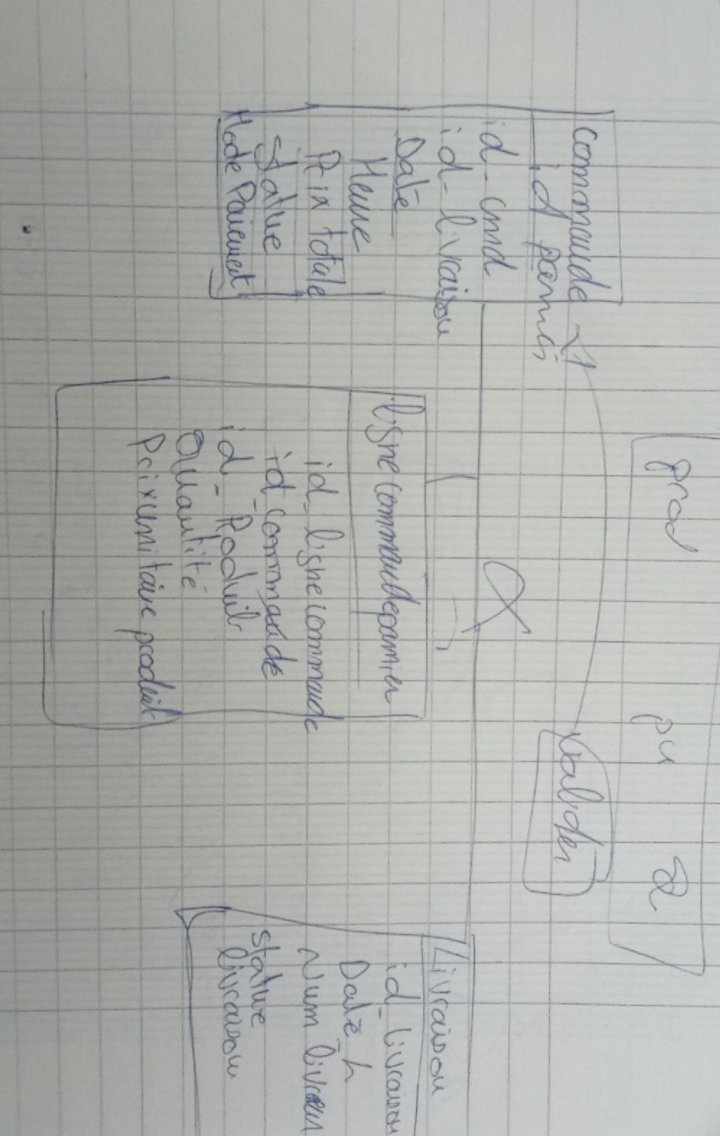 prod pu Q
valider
Commande
id panier
id_cmd
id_livraison
Date
Heure
Prix totale
Statue
Mode Paiement
lignecommandepanier
id_lignecommande
id_commande
id_Produit
Quantité
Prix unitaire produit
Livraison
id_livraison
Date_L
Num livreur
Statue
livraison